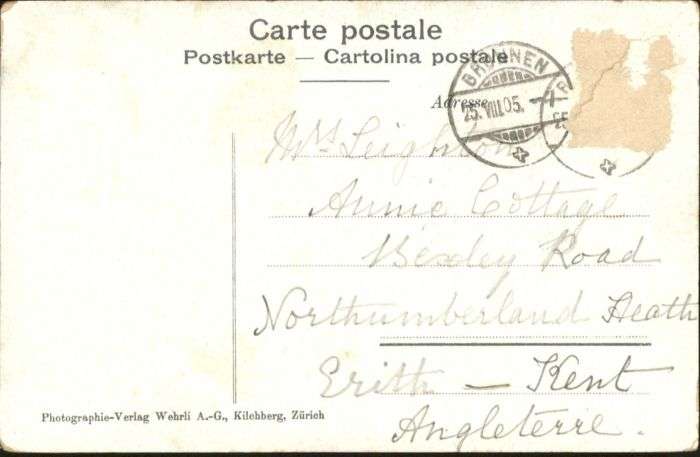 Carte postale
Postkarte — Cartolina postale
Adresse
BRUNNEN
25. VIII. 05. -7
Mrs Leighton
Annie Cottage
Bexley Road
Northumberland Heath
Erith — Kent
Angleterre.
Photographie-Verlag Wehrli A.-G., Kilchberg, Zürich